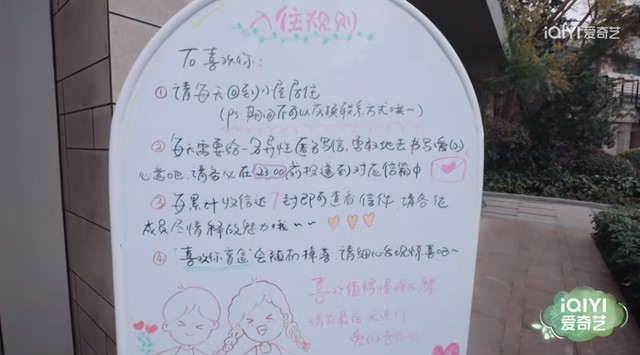 iQIYI 爱奇艺
入住规则
To 喜欢你:
① 请每天回到小屋居住
(Ps 期间不可以互换联系方式哦~)
② 每天需要给一名异性匿名写信,
心意吧, 请务必在 23:00 前投递到对应信箱中
③ 每累计收信达7封即可查看信件 请各位
成员尽情释放魅力哦~~
④ "喜欢你盲盒"会随机掉落, 请细心发现惊喜吧~
喜欢值得
请在最后
iQIYI
爱奇艺